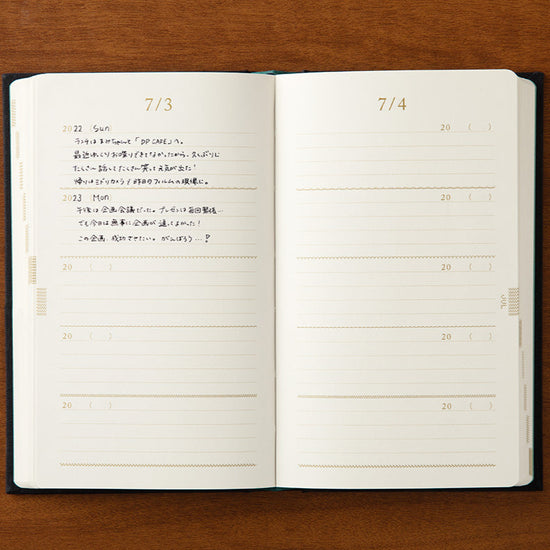 7/3
2022 Sun
ランチはまみちゃんと「PP CAFE」へ。
最近ゆっくりお喋りできてなかったから、久しぶりに
たくさん話してたくさん笑って元気が出た!
帰りはミドリカメラで昨日のフィルムの現像に。
2023 Mon
午後は企画会議だった。プレゼンは毎回緊張…
でも今日は無事に企画が通ってよかった!
この企画、成功させたい。がんばろう…!
20 ( )
20 ( )
20 ( )
7/4
20 ( )
20 ( )
20 ( )
20 ( )
20 ( )
JUL